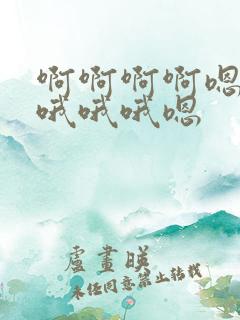 啊啊啊啊嗯
哦哦哦嗯
盧畫暎
未经同意禁止转载